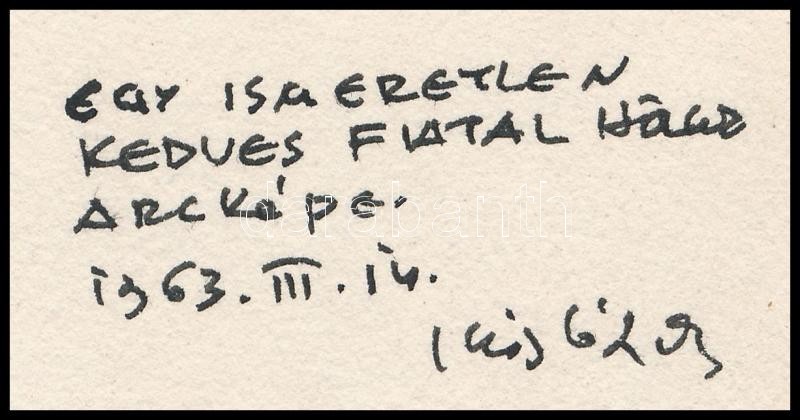 EGY ISMERETLEN
KEDVES FIATAL HÖLGY
ARCKÉPE.
1963. III. 14.
darabanth